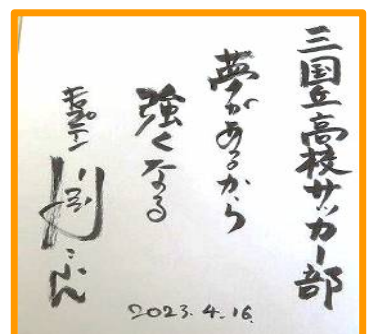 三国丘高校サッカー部
夢があるから
強くなる
キャプテン
川淵三郎
2023.4.16.